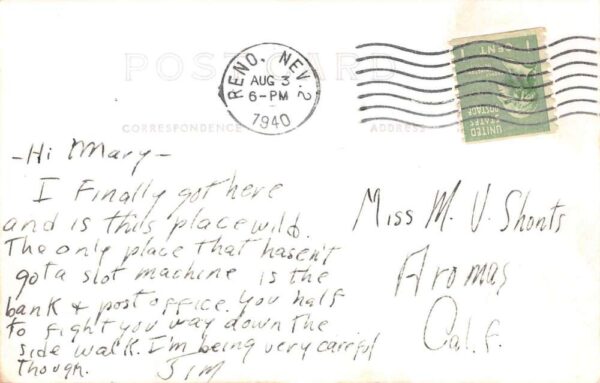 POST CARD
RENO, NEV. 2
AUG 3
6-PM
1940
1 CENT 1
UNITED
STATES
POSTAGE
CORRESPONDENCE
ADDRESS
-Hi Mary-
I Finally got here
and is this place wild.
The only place that hasen't
got a slot machine is the
bank & post office. You half
to fight you way down the
side walk. I'm being very careful
though. Jim
Miss M. V. Shonts
Aromas
Calif.